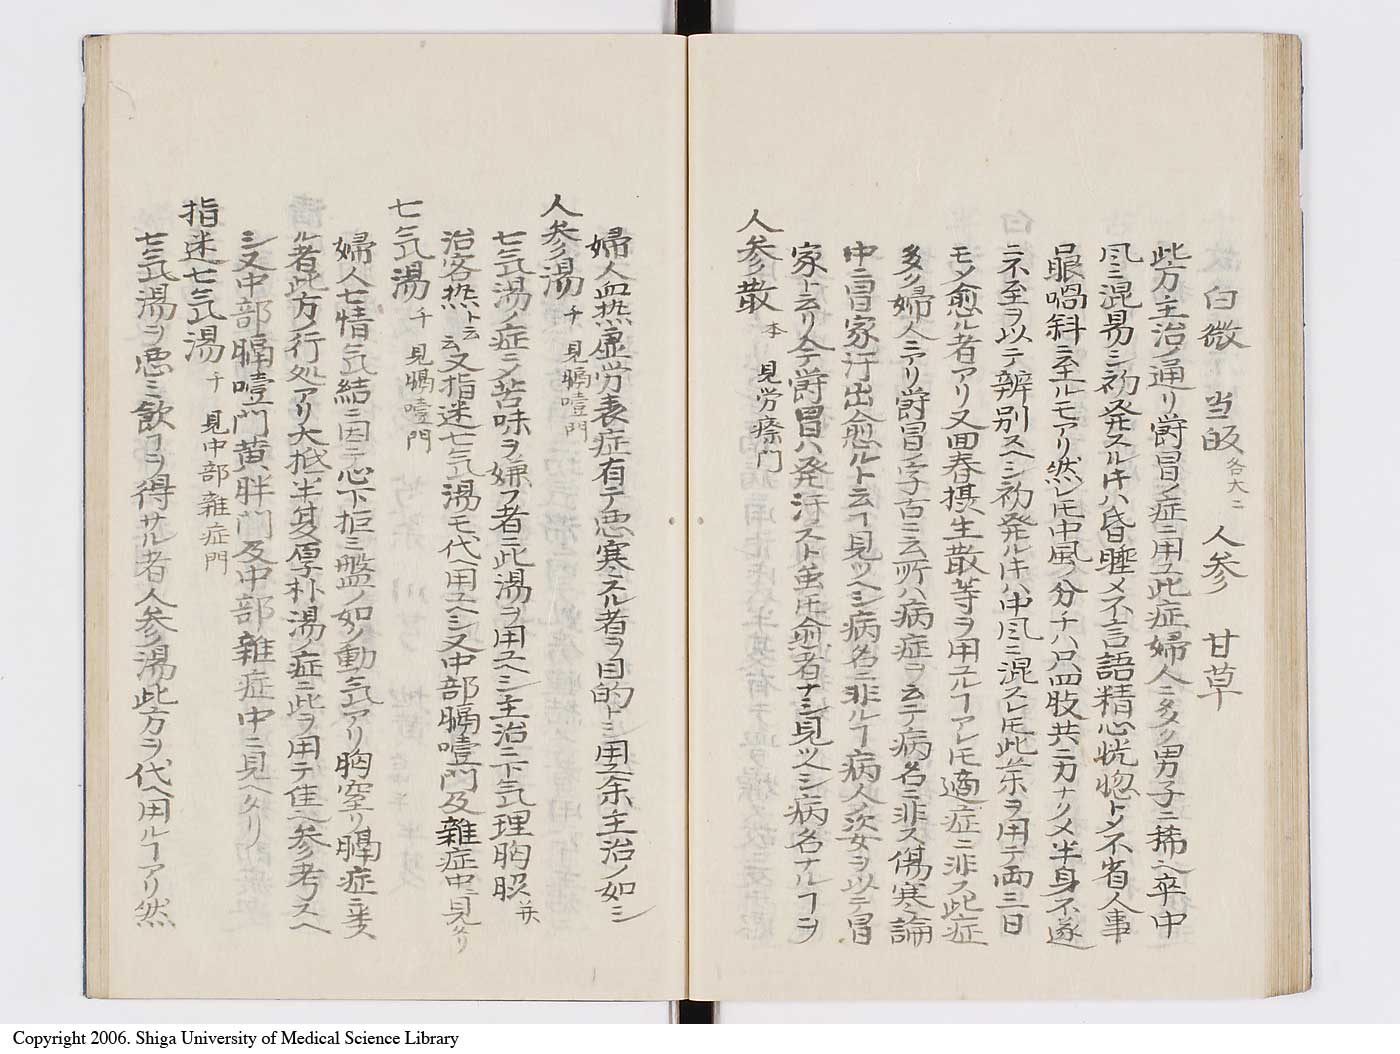 白微 当皈 各大ニ 人参 甘草
此方主治ノ通リ欝冒ノ症ニ用ユ此症婦人ニ多ク男子ニ稀也卒中
風ニ混易シ初発スル𪜈ハ昏睡メ不言語精心恍惚トメ不省人事
眼喎斜ニ至ルモアリ然レ𪜈中風ノ分ナハ只四肢共ニ力ナクメ半身不遂
ニ不至ヲ以テ辨別スヘシ初発ル𪜈ハ中風ニ混スレ𪜈此薬ヲ用テ両三日
モメ愈ル者アリ又回春摂生散等ヲ用ユルヿアレ𪜈適症ニ非ス此症
多ク婦人ニアリ欝冒ノ字古ニ云所ハ病症ヲ云テ病名ニ非ス傷寒論
中ニ冒家汗出愈ルト云ヿ見ツヘシ病名ニ非ルヿ病人ノ次女ヲ以テ冒
家ト云リ今テ欝冒ハ発汗スト虽𪜈愈者ナシ見ツヘシ病名ナルヿヲ
人参散 本 見労瘵門
婦人血热虚労表症有テ悪寒スル者ヲ目的トシ用余主治ノ如シ
人参湯 千 見膈噎門
七気湯ノ症ニメ苦味ヲ嫌フ者ニ此湯ヲ用ユヘシ主治ニ下気理胸膈 并
治客热ト云云又指迷七気湯モ代ヘ用ユヘシ又中部膈噎門及雑症中ニ見タリ
七気湯 千 見膈噎門
婦人七情ノ気結ニ因テ心下拒ミ盤ノ如ク動気アリ胸空リ膈症ニ类ス
ル者此方ノ行処アリ大抵半夏厚朴湯ノ症ニ此ヲ用テ佳ヘ参考スヘ
シ又中部膈噎門黄胖門及中部雑症中ニ見ヘタリ
指迷七気湯 千 見中部雑症門
七気湯ヲ悪ミ飲ヿヲ得サル者人参湯此方ヲ代ヘ用ルヿアリ然